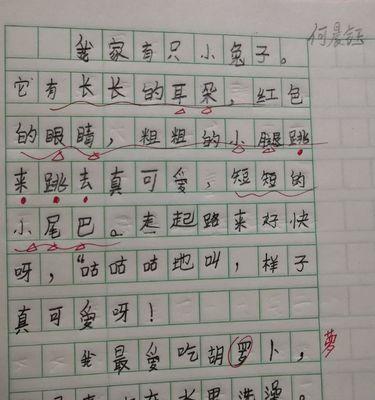 何晨钰
我家有只小兔子。
它有长长的耳朵，红色
的眼睛，粗粗的小腿跳
来跳去真可爱，短短的
小尾巴。走起路来好快
呀，“咕咕咕地叫，样子
真可爱呀！
我最爱吃胡萝卜，萝
在长里洗澡。